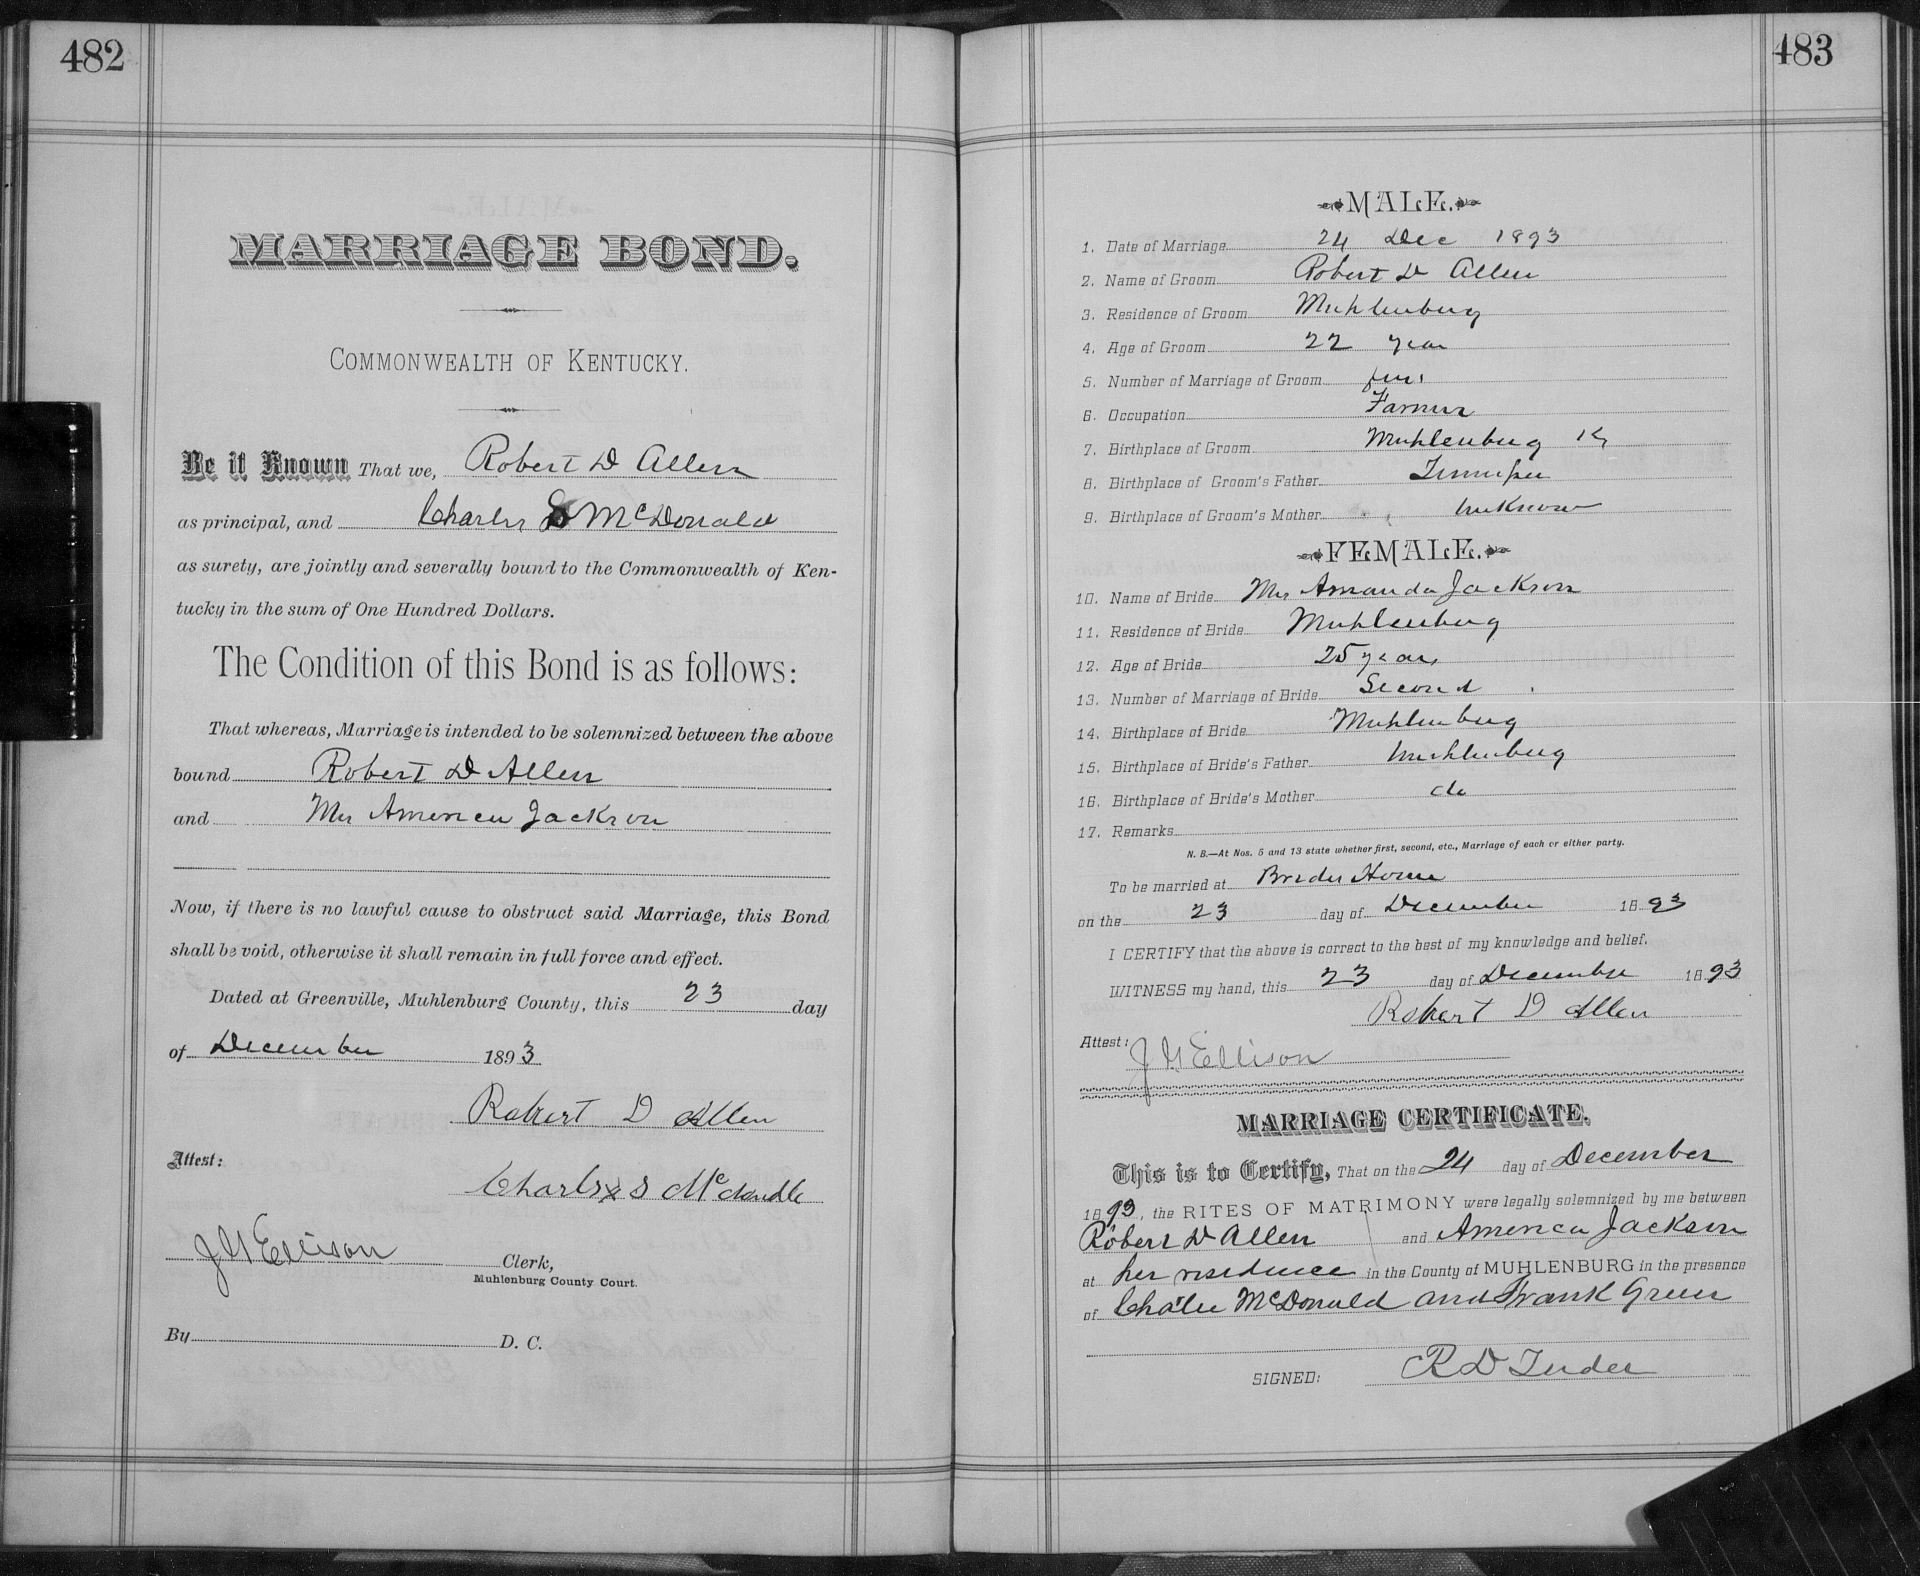 482
MARRIAGE BOND.
COMMONWEALTH OF KENTUCKY.
Be it Known That we, Robert D Allen
as principal, and Charles S McDonald
as surety, are jointly and severally bound to the Commonwealth of Ken-
tucky in the sum of One Hundred Dollars.
The Condition of this Bond is as follows:
That whereas, Marriage is intended to be solemnized between the above
bound Robert D Allen
and Mrs America Jackson
Now, if there is no lawful cause to obstruct said Marriage, this Bond
shall be void, otherwise it shall remain in full force and effect.
Dated at Greenville, Muhlenburg County, this 23 day
of December 1893
Robert D Allen
Attest:
Charles S
J Ellison Clerk,
Muhlenburg County Court.
By D. C.
483
MALE.
1. Date of Marriage 24 Dec 1893
2. Name of Groom Robert D Allen
3. Residence of Groom Muhlenburg
4. Age of Groom 22 year
5. Number of Marriage of Groom
6. Occupation Farmer
7. Birthplace of Groom Muhlenburg Ky
8. Birthplace of Groom's Father Tennessee
9. Birthplace of Groom's Mother Unknown
FEMALE.
10. Name of Bride Mrs Amanda Jackson
11. Residence of Bride Muhlenburg
12. Age of Bride 25 years
13. Number of Marriage of Bride Second
14. Birthplace of Bride Muhlenburg
15. Birthplace of Bride's Father Muhlenburg
16. Birthplace of Bride's Mother do
17. Remarks
N. B.—At Nos. 5 and 13 state whether first, second, etc., Marriage of each or either party.
To be married at Brides Home
on the 23 day of December 1893
I CERTIFY that the above is correct to the best of my knowledge and belief.
WITNESS my hand, this 23 day of December 1893
Robert D Allen
Attest: J Ellison
MARRIAGE CERTIFICATE.
This is to Certify, That on the 24 day of December
1893, the RITES OF MATRIMONY were legally solemnized by me between
Robert D Allen and America Jackson
at her residence in the County of MUHLENBURG in the presence
of Charlie McDonald and Frank Green
SIGNED: R D